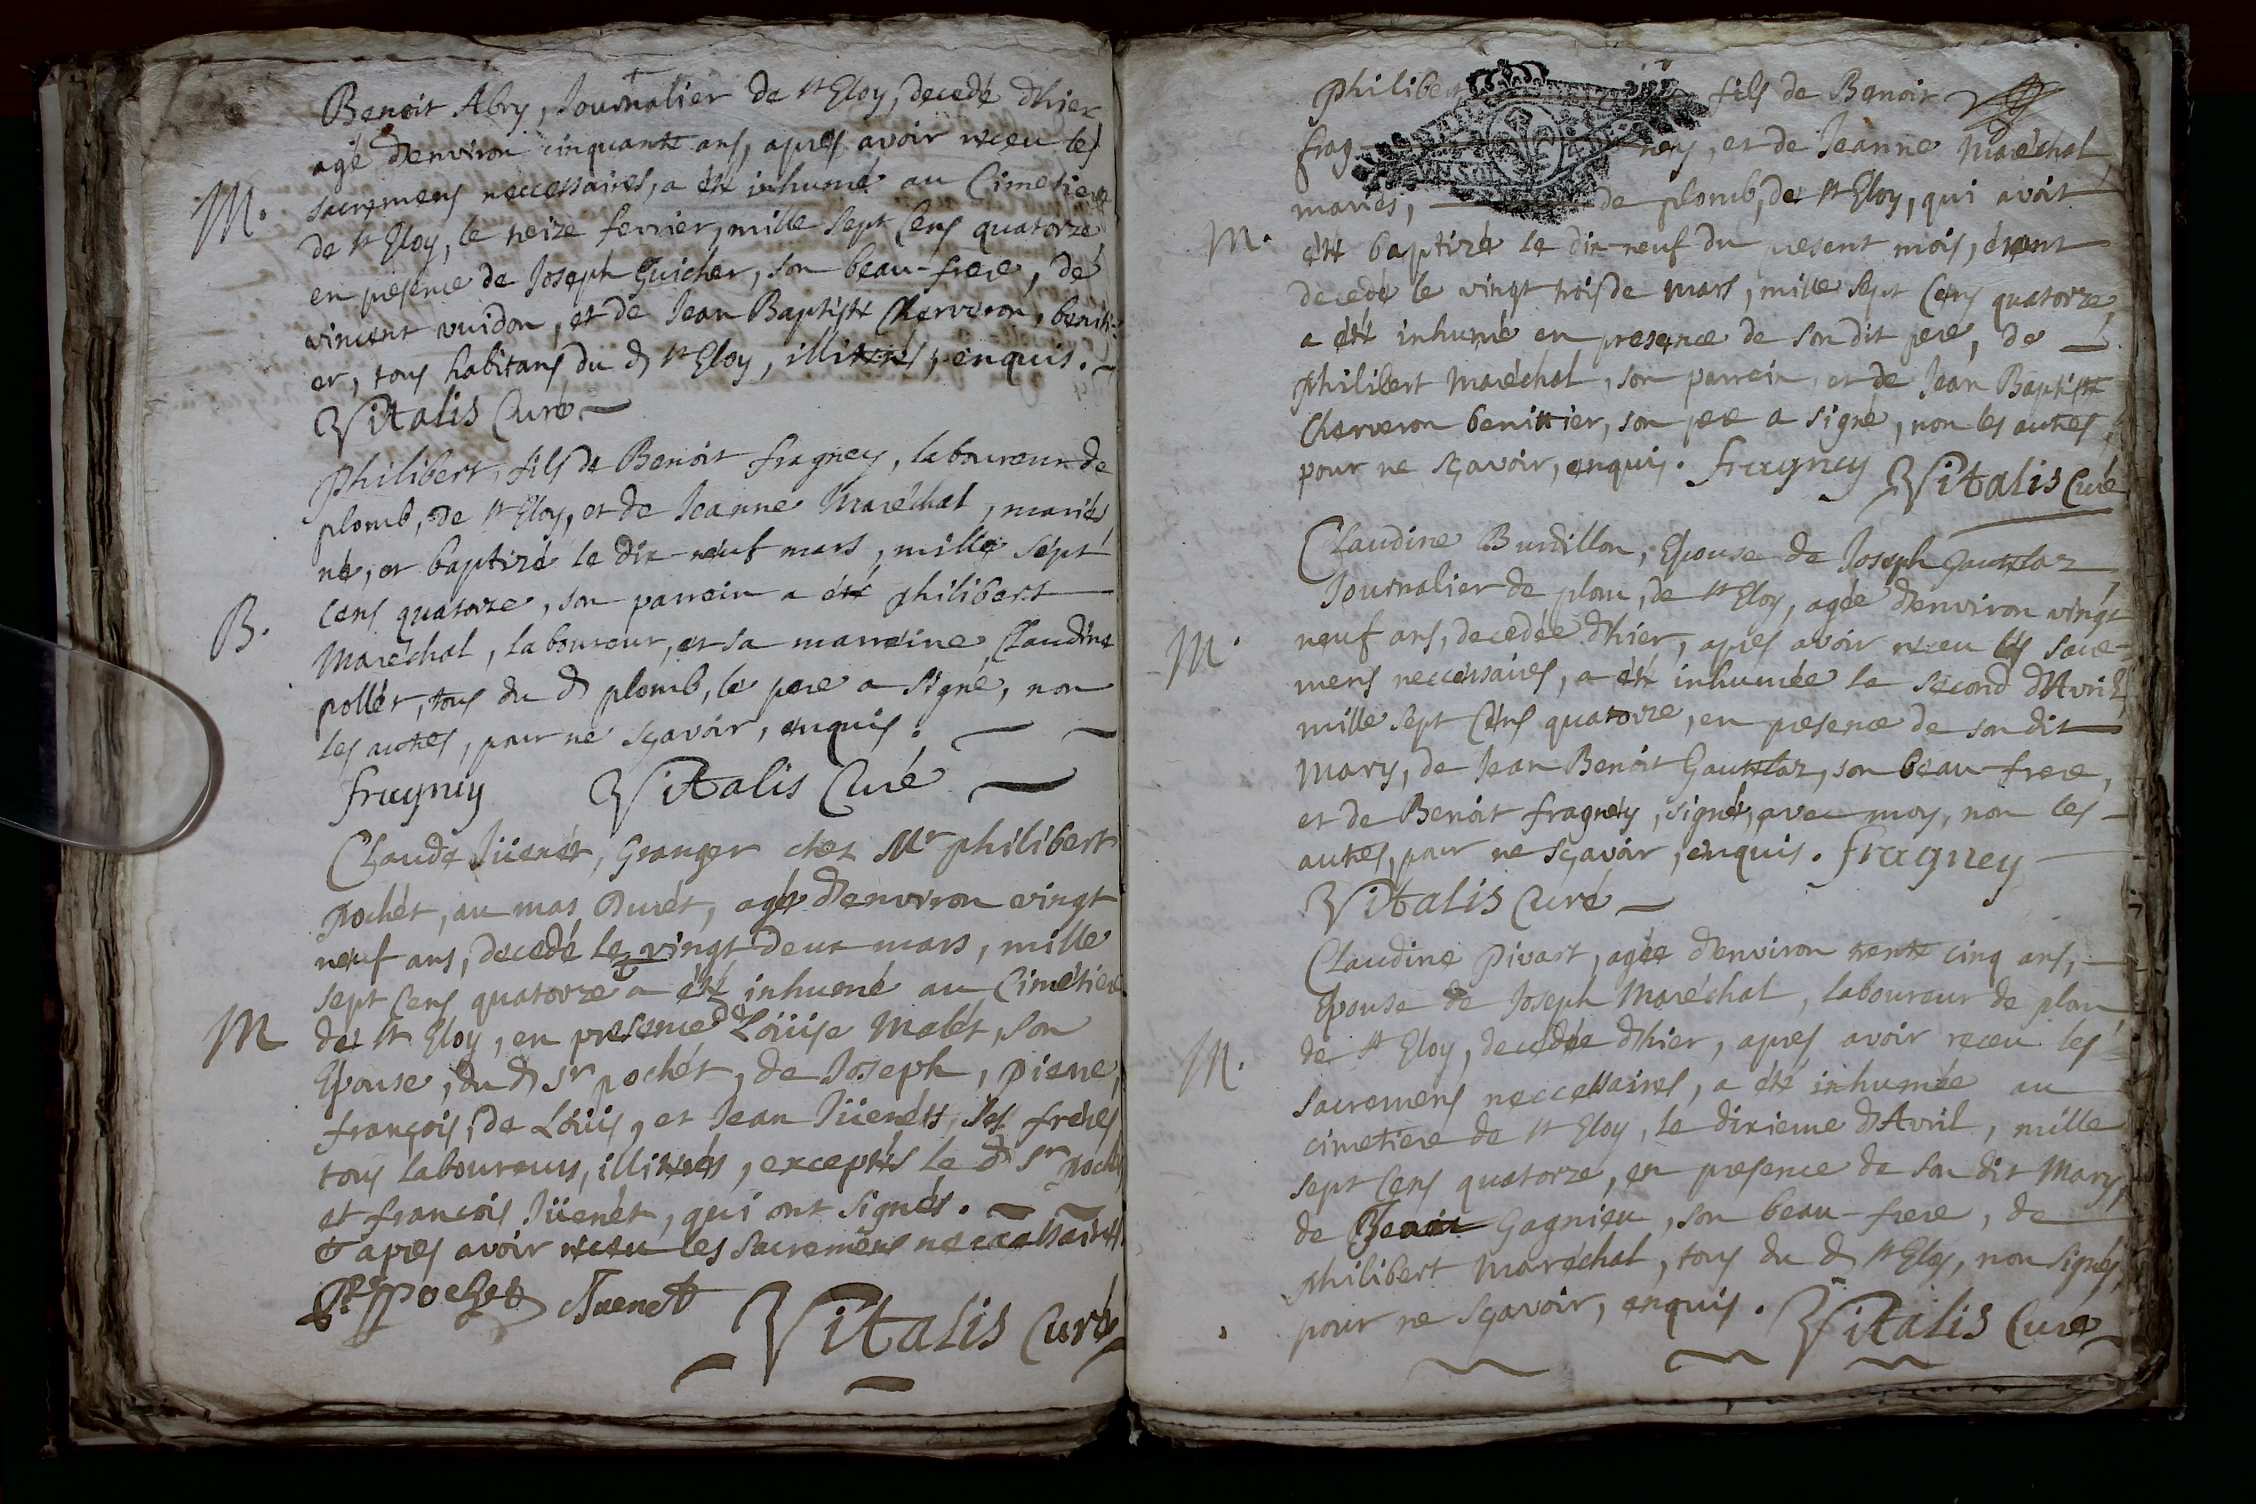 Benoit Abry, Journalier de st Eloy, decedé dhier
agé denviron cinquante ans, apres avoir receu les
M. sacremens neccessaires, a été inhumé au Cimetiere
de st Eloy, le treize fevrier, mille sept Cens quatorze
en presence de Joseph Guicher, son beau-frere, de
vincent vuidon, et de Jean Baptiste Cherveron, benitti-
er, tous habitans du d st Eloy, illitrés, enquis.
Vitalis Curé
Philibert, fils de Benoit fragney, laboureur de
plomb, de st Eloy, et de Jeanne Maréchal, mariés,
né, et baptizé le dix neuf mars, mille sept
B. Cens quatorze, son parrein a été philibert
Maréchal, laboureur, et sa marreine, Claudine
pollét, tous du d plomb, le pere a signé, non
les autres, pour ne sçavoir, enquis.
fragney Vitalis Curé
Claude Jüenét, Granger chez Mr philibert
Pochét, au mas Durét, agé denviron vingt
neuf ans, decedé le vingt deux mars, mille
sept Cens quatorze a été inhumé au Cimétiere
M de st Eloy, en presence de Loüise Malét, son
Epouse, du d Sr pochét, de Joseph, Piere,
françois, de Loüis, et Jean Jüenéts, ses fréres
tous laboureurs, illitrés, exceptés le d Sr Poch
et françois Jüenét, qui ont signés.
apres avoir receu les sacremens neccessaires
Pt Pochet Juenet
Vitalis Curé
Philibert fils de Benoit
frag ney, et de Jeanne Maréchal
mariés, de plomb, de st Eloy, qui avoit
M. été baptizé le dix-neuf du present mois, étant
decedé le vingt trois de mars, mille sept Cens quatorze,
a été inhumé en presence de son dit pere, de
philibert Maréchal, son parrein, et de Jean Baptiste
Cherveron benittier, son pere a signé, non les autres,
pour ne sçavoir, enquis. fragney Vitalis Curé
Claudine Burdillon, Epouse de Joseph Gauttlaz
Journalier de plom, de st Eloy, agée denviron vingt
M. neuf ans, decedée dhier, apres avoir receu les sacre-
mens neccessaires, a été inhumée le second dAvril
mille sept Cens quatorze, en presence de son dit
Mary, de Jean Benoit Gauttlaz, son beau-frere,
et de Benoit fragney, signé, avec moy, non les
autres, pour ne sçavoir, enquis. fragney
Vitalis Curé
Claudine Pivart, agée denviron trente cinq ans,
Epouse de Joseph Maréchal, laboureur de plom
de st Eloy, decedée dhier, apres avoir receu les
M. sacremens neccessaires, a été inhumée au
cimetiere de st Eloy, le dixieme dAvril, mille
sept Cens quatorze, en presence de son dit Mary,
de Benoit Gagnieu, son beau-frere, de
philibert Maréchal, tous du d st Eloy, non signés,
pour ne sçavoir, enquis. Vitalis Curé